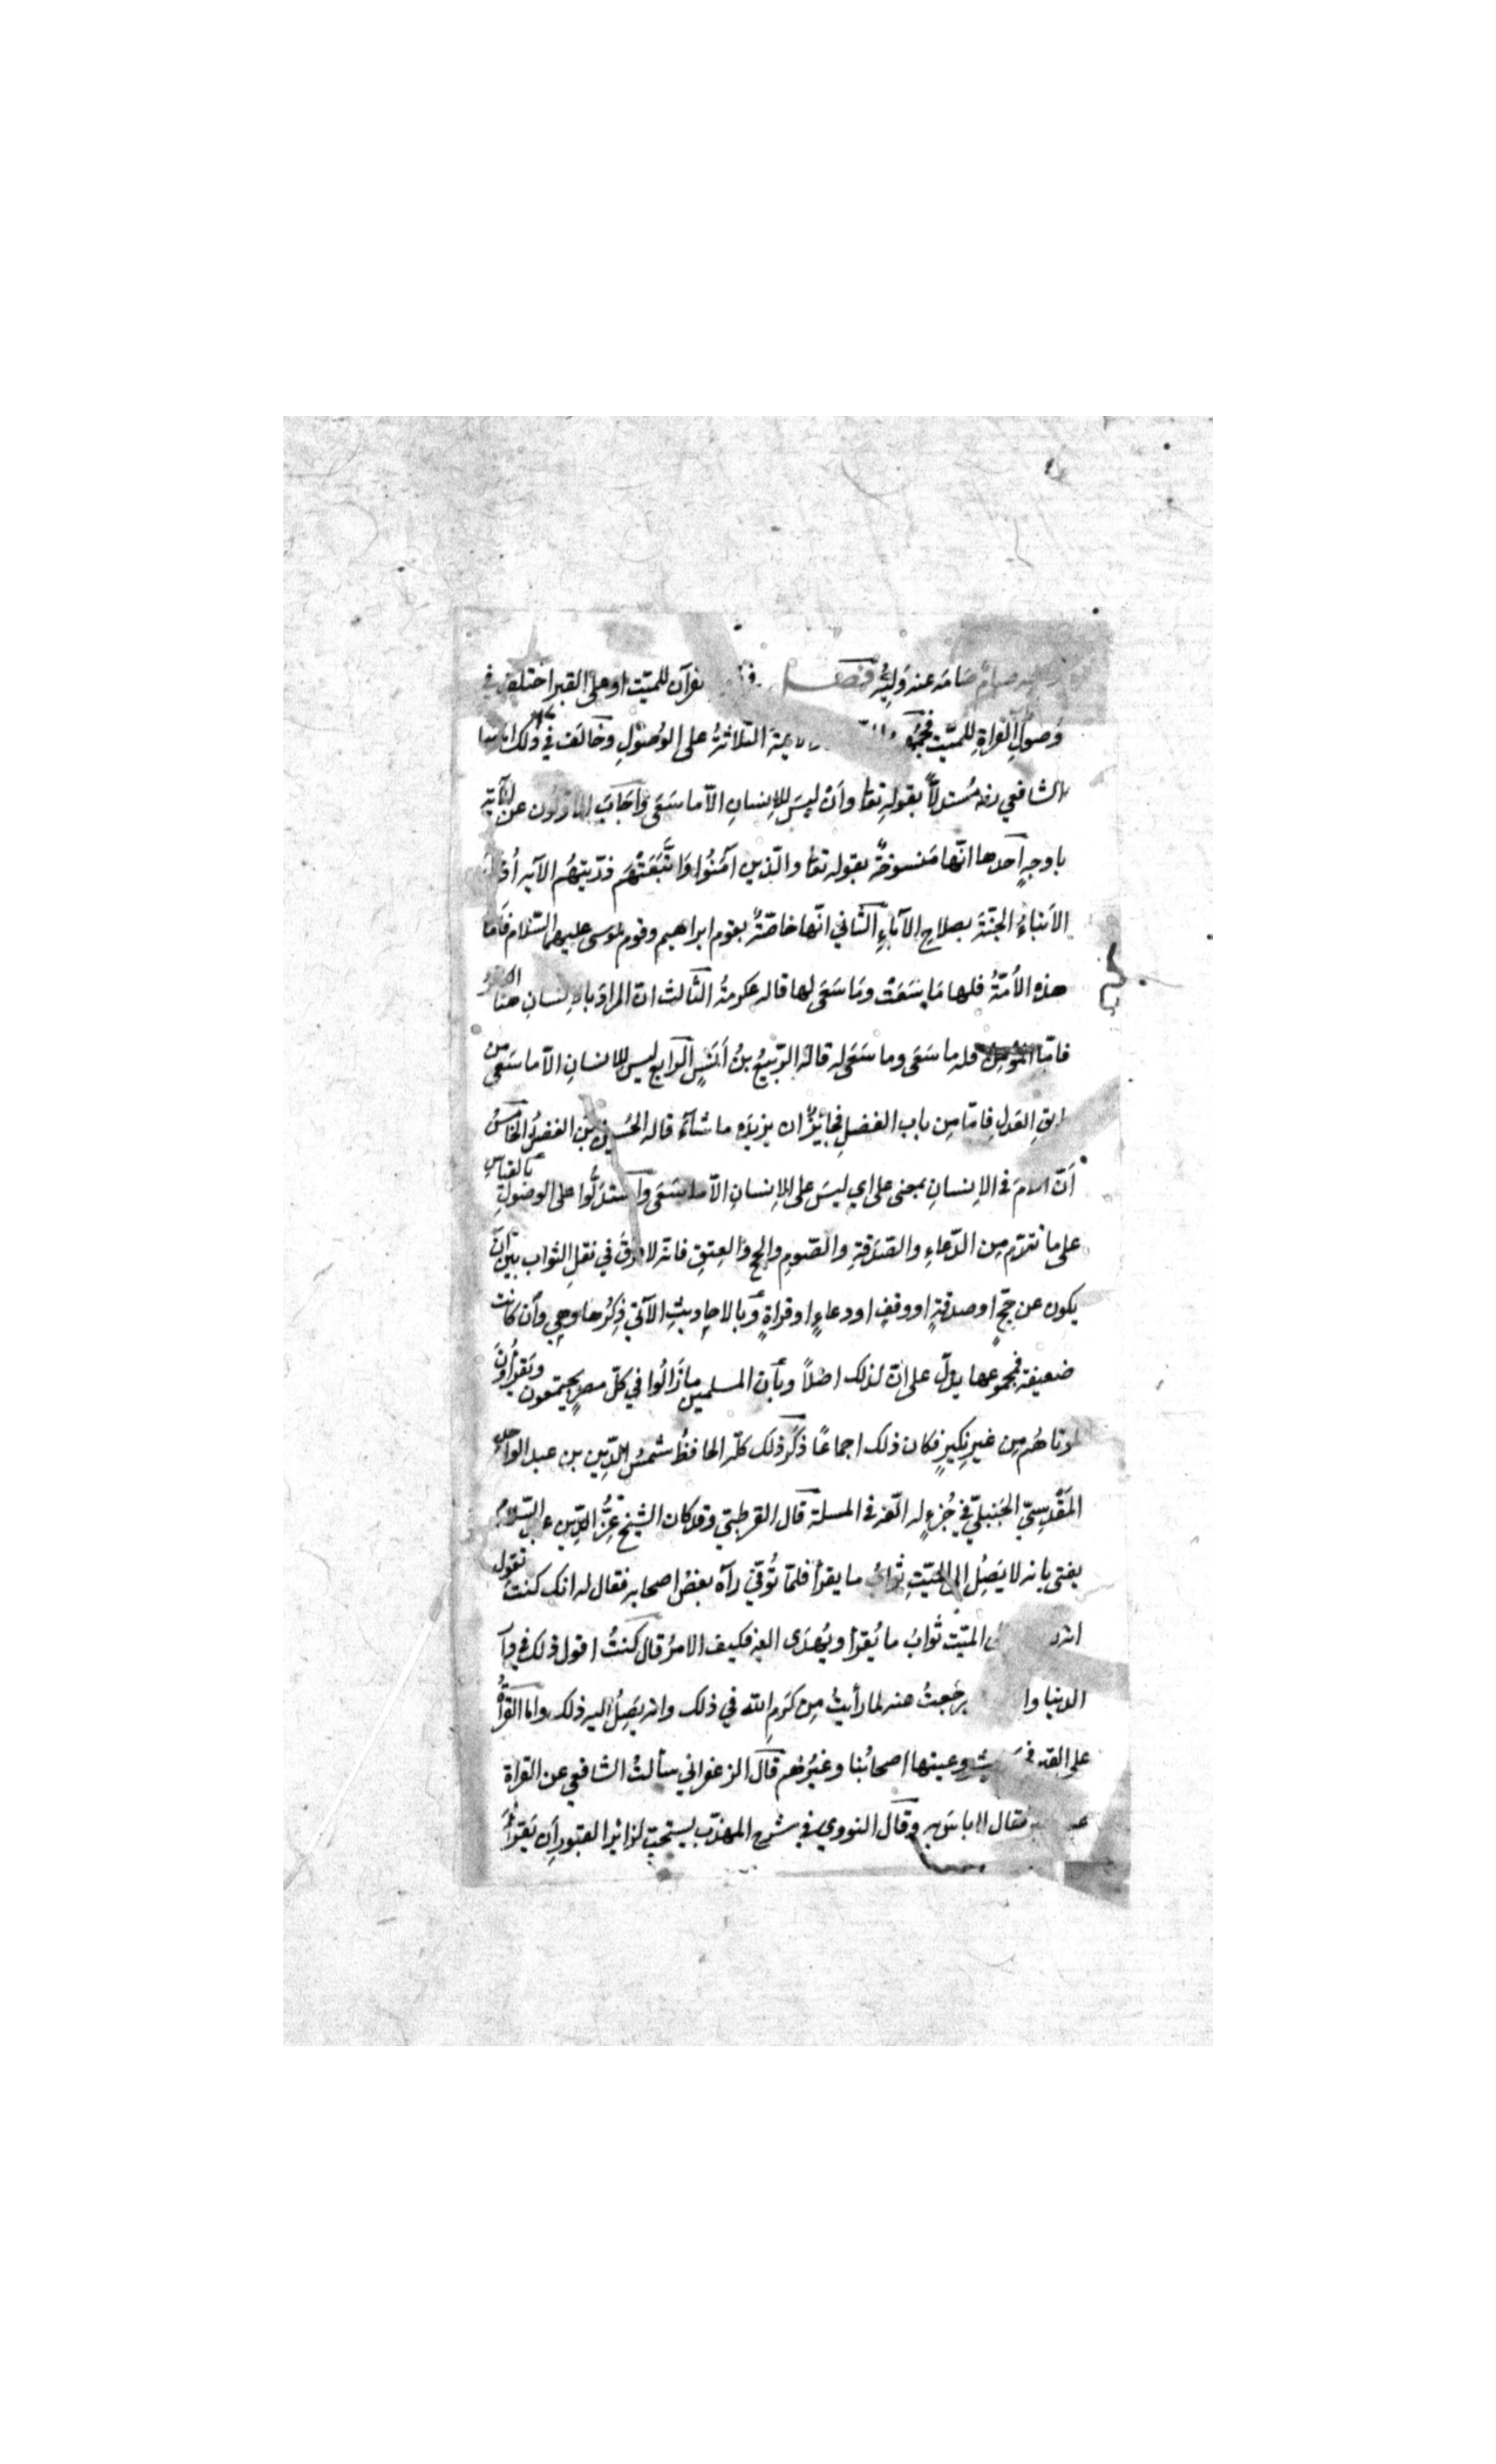 صيام صامه عنه وليه فصل قرآن للميت او على القبر اختلف في
وصول القراة للميت فجمهور الثلاثة على الوصول وخالف في ذلك امامنا
الشافعي رضه مُستدلاً بقوله تعا وأن ليسَ للإنسانِ الاّ ما سَعَى واَجَابَ عن الآية
باوجهٍ احدها انّها مَنسوخةٌ بقوله تعا والّذين آمَنُوا وَاتَّبَعَتْهُم ذرّيتهُم الآيه أُدخل
الأبناءُ الجنّةَ بصلاحِ الآباءِ الثّاني انّها خاصّةٌ بقوم ابراهيم وقوم موسى عليهما السّلام فَأمّا
هذه الأمّةُ فلها مَا سَعَتْ ومَا سُعَى لها قاله عكرمةُ الثّالث انّ المرادَ بالإنسانِ هُنا الكافرُ
فامّا المؤمن فله ما سَعَى وما سُعَى له قالهُ الرّبيعُ بنُ اَنَسٍ الرابع ليس للإنسانِ الاّ ما سَعَى من
طريقِ العَدلِ فامّا مِن باب الفضلِ فجائِزٌ ان يزيدَه ما شآءَ قاله الحُسين بن الفضلُ الخامسُ
أنّ اللامَ في الإنسانِ بمعنى على اي ليسَ على الإنسانِ الاّ ما سَعَى واستدلُّوا على الوصُولِ بالقياسِ
على ما تقدّم مِن الدّعاءِ والصّدَقةِ والصّومِ والحجّ والعِتقِ فانّه لا فرقَ في نقلِ الثّواب بين انّ
يكون عن حجٍّ او صدقةٍ او وقفٍ او دعاءٍ او قراةٍ وبالاحاديثِ الآتي ذِكرُها وهي وأن كانت
ضعيفة فمجموعها يدلّ على انّ لذلك اصلاً وبأن المسلمين ما زالُوا في كلّ مصرٍ يجتمعون ويَقرؤُنَ
لموتاهُم مِن غيرِ نكيرٍ فكان ذلك اجماعًا ذكَر ذلك كلّه الحافظُ شمسُ الدّين بن عبد الواحد
المَقْدِسيّ الحَنبليّ في جُزءٍ له الّفه في المسلة قال القرطبيّ وقد كان الشيخ عِزُّ الدّين عبد السّلام
يفتي بانه لا يَصِلُ الى الميّتِ ثوابُ ما يقرأ فلمّا تُوفّي رآه بعضُ اصحابه فقال له انك كنتَ تقول
انه الى الميّت ثوابُ ما يُقرأ ويُهدَى اليه فكيف الامرُ قال كنتُ اقول ذلك في دار
الدنيا وا رَجَعتُ عنه لما رأيتُ مِن كَرمِ الله في ذلك وانه يَصِلُ اليه ذلك واما القراةُ
على القبر وعينها اصحابُنا وغيرُهم قال الزعفراني سألتُ الشافعي عن القراة
فقال لا باسَ به وقال النووي في شرح المهذّب يستحبّ لزائر القبور أن يَقرأَ